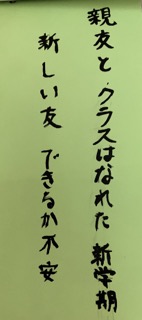 親友と クラスはなれた 新学期
新しい友 できるか不安